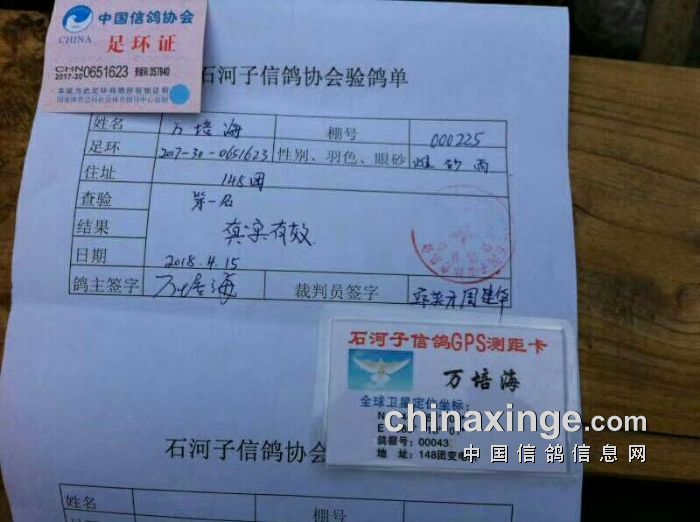 中国信鸽协会
CHINA
足环证
CHN
2017-30 0651623
本证为此足环鸽所有权证明
石河子信鸽协会验鸽单
姓名 万培海 棚号 000225
足环 2017-30-0651623 性别、羽色、眼砂 雄 砂 雨
住址 148团
查验 第一名
结果 真实有效
日期 2018.4.15
鸽主签字 万培海 裁判员签字 周建华
石河子信鸽GPS测距卡
万培海
全球卫星定位坐标:
N
E
鸽棚号:00043
地 址:148团变电
chinaxinge.com
中国信鸽信息网
石河子信鸽协会
姓名
棚号